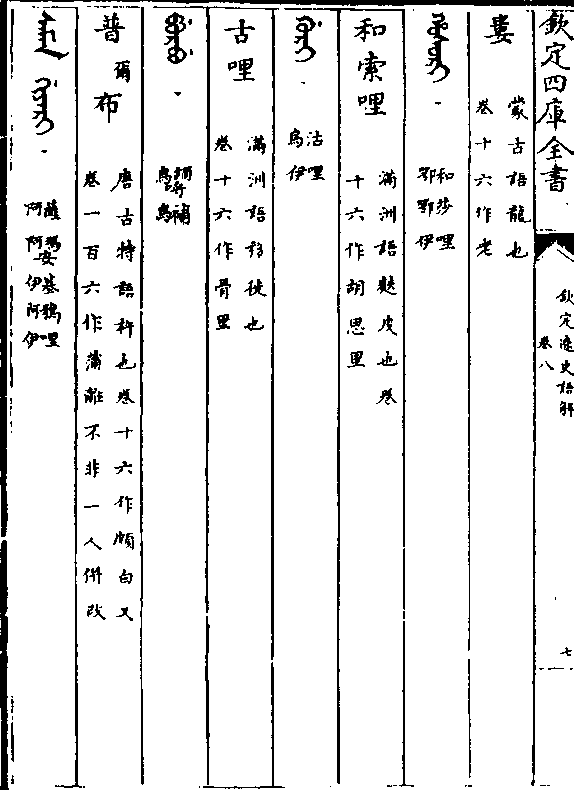 欽定四庫全書
欽定遼史語解
卷八
七
婁 蒙古語龍也
卷十六作老
和莎哩
鄂鄂伊
和索哩 滿洲語麩皮也卷
十六作胡思里
沽哩
烏伊
古哩 滿洲語移徙也
卷十六作骨里
普爾布 唐古特語杵也卷十六作頗白又
卷一百六作蒲離不非一人併改
阿阿伊阿伊